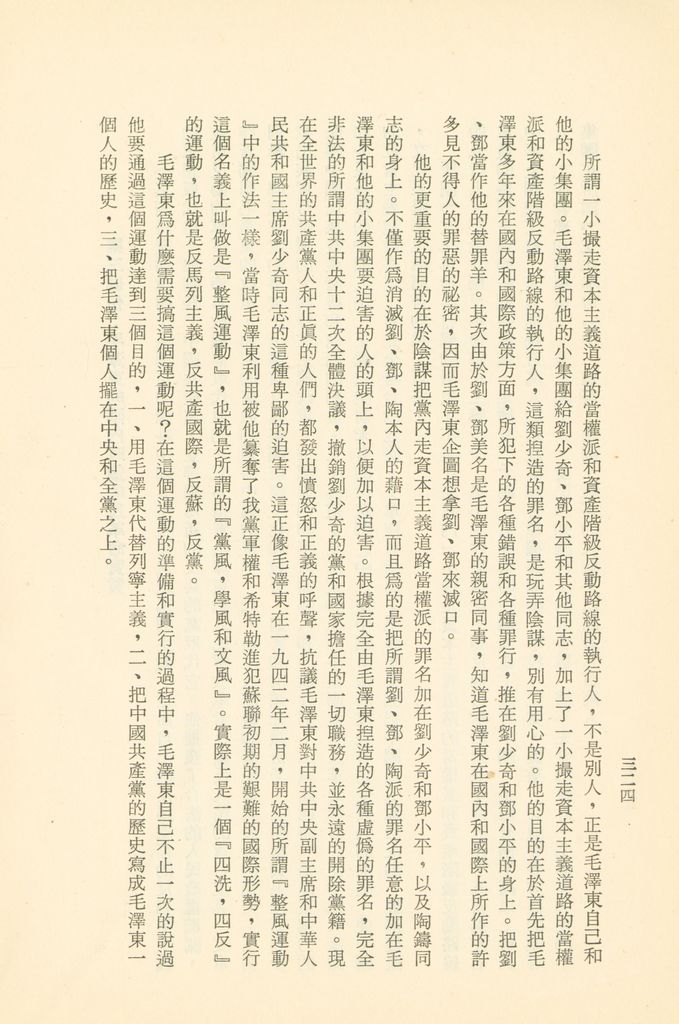 三二四
所謂一小撮走資本主義道路的當權派和資產階級反動路線的執行人，不是別人，正是毛澤東自己和
他的小集團。毛澤東和他的小集團給劉少奇、鄧小平和其他同志，加上了一小撮走資本主義道路的當權
派和資產階級反動路線的執行人，這類揑造的罪名，是玩弄陰謀，別有用心的。他的目的在於首先把毛
澤東多年來在國內和國際政策方面，所犯下的各種錯誤和各種罪行，推在劉少奇和鄧小平的身上。把劉
、鄧當作他的替罪羊。其次由於劉、鄧美名是毛澤東的親密同事，知道毛澤東在國內和國際上所作的許
多見不得人的罪惡的祕密，因而毛澤東企圖想拿劉、鄧來滅口。
他的更重要的目的在於陰謀把黨內走資本主義道路當權派的罪名加在劉少奇和鄧小平，以及陶鑄同
志的身上。不僅作爲消滅劉、鄧、陶本人的藉口，而且爲的是把所謂劉、鄧、陶派的罪名任意的加在毛
澤東和他的小集團要迫害的人的頭上，以便加以迫害。根據完全由毛澤東揑造的各種虛僞的罪名，完全
非法的所謂中共中央十二次全體決議，撤銷劉少奇的黨和國家擔任的一切職務，並永遠的開除黨籍。現
在全世界的共產黨人和正眞的人們，都發出憤怒和正義的呼聲，抗議毛澤東對中共中央副主席和中華人
民共和國主席劉少奇同志的這種卑鄙的迫害。這正像毛澤東在一九四二年二月，開始的所謂『整風運動
』中的作法一樣，當時毛澤東利用被他纂奪了我黨軍權和希特勒進犯蘇聯初期的艱難的國際形勢，實行
這個名義上叫做是『整風運動』，也就是所謂的『黨風，學風和文風』。實際上是一個『四洗，四反』
的運動，也就是反馬列主義，反共產國際，反蘇，反黨。
毛澤東爲什麼需要搞這個運動呢？在這個運動的準備和實行的過程中，毛澤東自己不止一次的說過
他要通過這個運動達到三個目的，一、用毛澤東代替列寧主義，二、把中國共產黨的歷史寫成毛澤東一
個人的歷史，三、把毛澤東個人擺在中央和全黨之上。